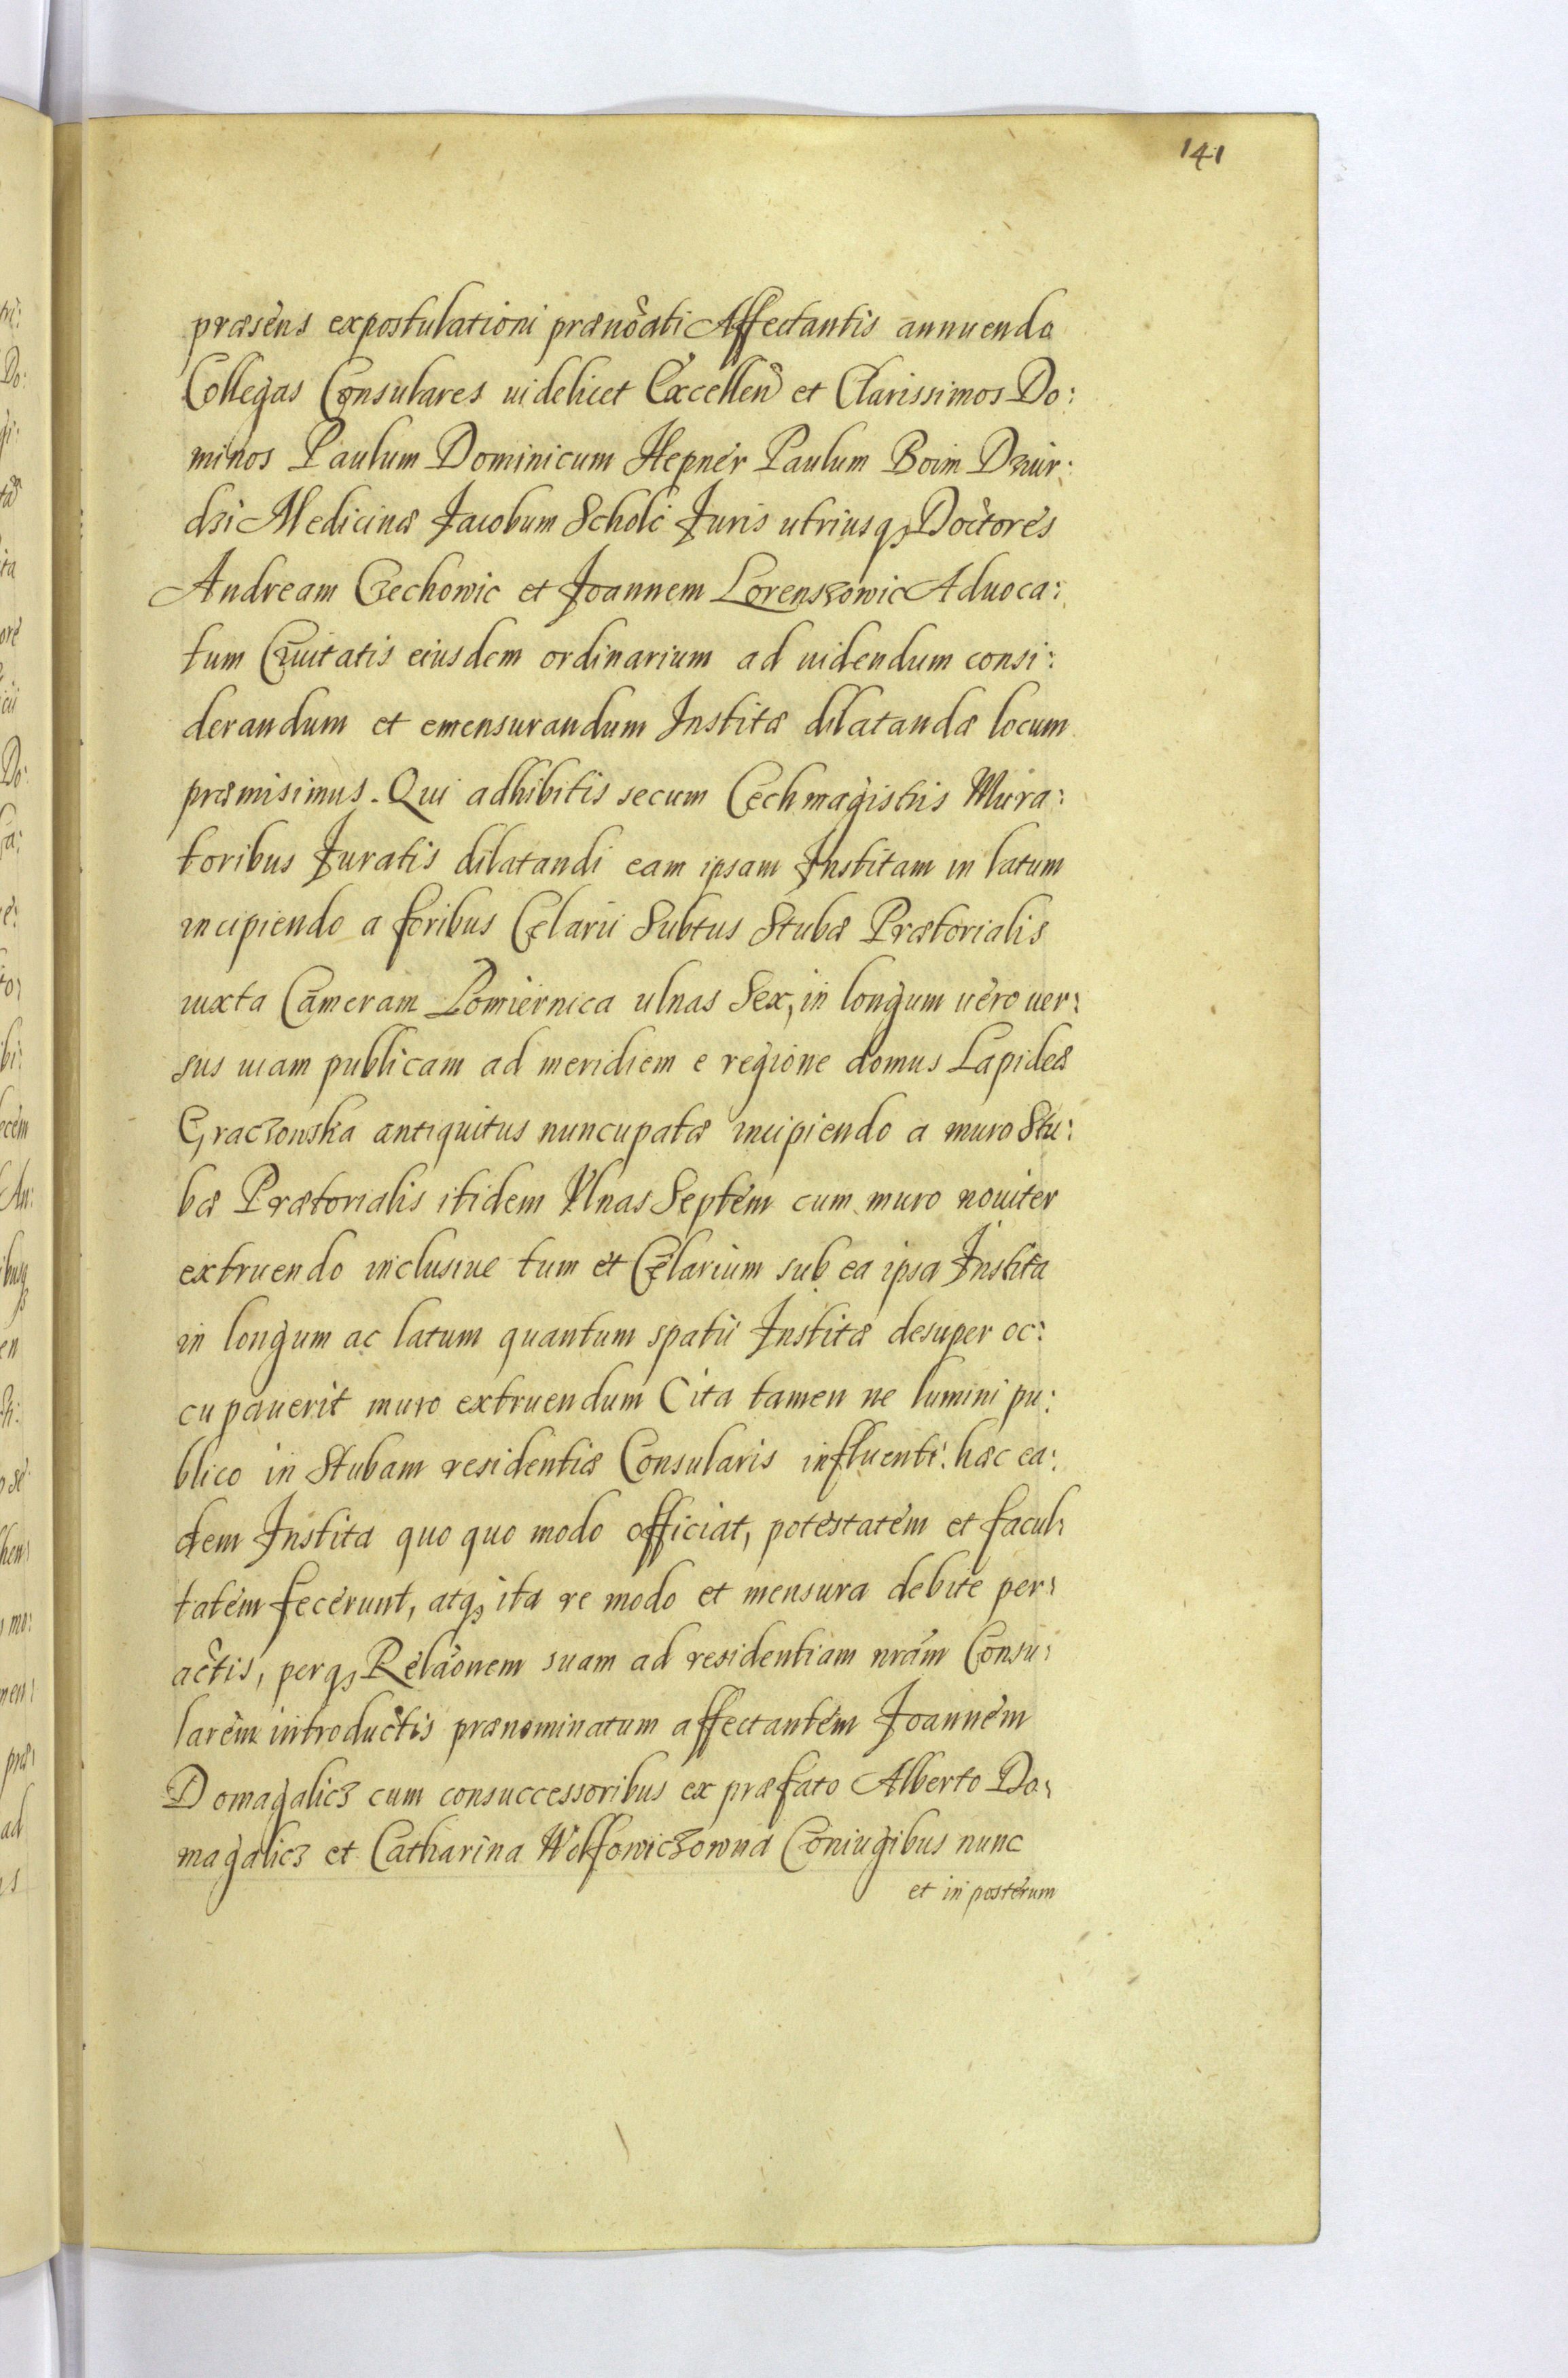 141
præsens expostulationi prænoati Affectantis annuendo
Collegas Consulares uidelicet Excellen et Clarissimos Do:
minos Paulum Dominicum Hepner Paulum Boim Dziur:
dzi Medicinæ Jacobum Scholc Juris utriusq3 Doctores
Andream Czechowic et Joannem Lorenszowic Aduoca:
tum Ciuitatis eiusdem ordinarium ad uidendum consi:
derandum et emensurandum Institæ dilatandæ locum
præmisimus. Qui adhibitis secum Cechmagistris Mura:
toribus Juratis dilatandi eam ipsam Institam in latum
incipiendo a foribus Cęlarii Subtus Stubæ Prætorialis
iuxta Cameram Pomiernica ulnas Sex, in longum uero uer:
sus uiam publicam ad meridiem e regione domus Lapideæ
Graczowska antiquitus nuncupatæ incipiendo a muro Stu:
bæ Prætorialis itidem Vlnas Septem cum muro nouiter
extruendo inclusiue tum et Cęlarium sub ea ipsa Instita
in longum ac latum quantum spatii Institæ desuper oc:
cupauerit muro extruendum (ita tamen ne lumini pu:
blico in Stubam residentiæ Consularis influenti: hæc ea:
dem Instita quo quo modo officiat, potestatem et facul:
tatem fecerunt, atq3 ita re modo et mensura debite per:
actis, perq3 Relaonem suam ad residentiam nram Consu:
larem introductis prænominatum affectantem Joannem
Domagalicz cum consuccessoribus ex præfato Alberto Do:
magalicz et Catharina Wolfowiczowna Coniugibus nunc
et in posterum